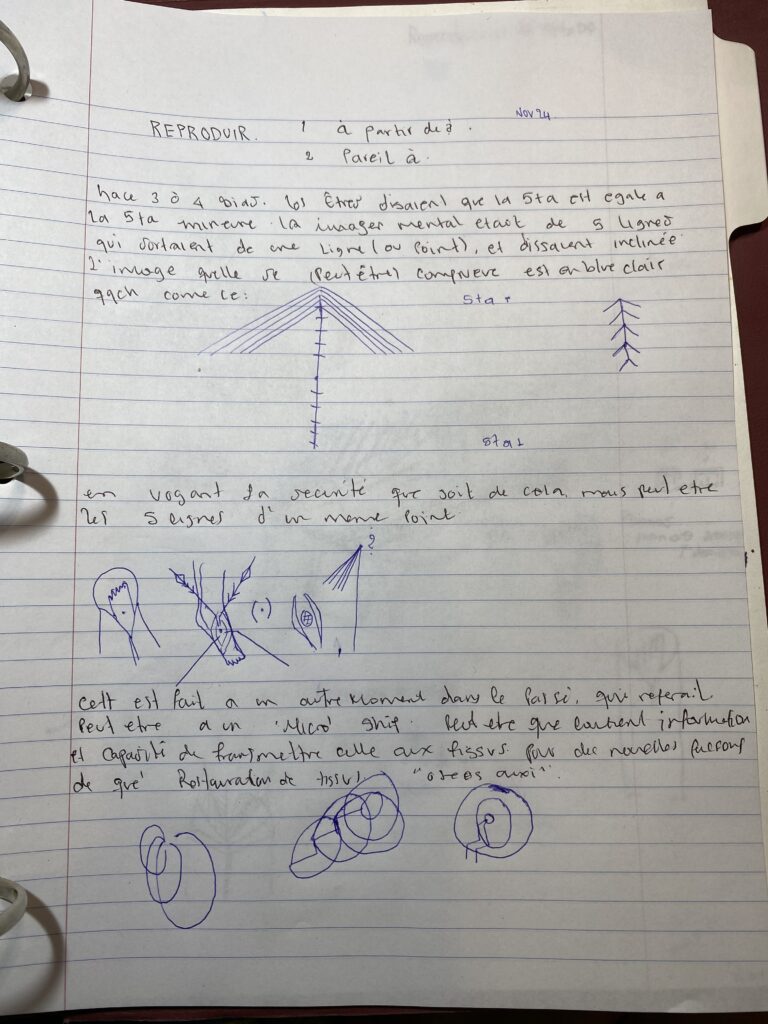 Nov 24
REPRODUIR. 1 à partir de?.
2 Pareil à.
hace 3 ò 4 Êtres disaient que la 5ta est egale a
la 5ta mineure la mental etait de 5 lignes
qui sortaient de une ligne (ou point), et dissaient inclinée
L'image quelle se (peut être) est en blue clair
come ce:
5ta
5ta 1
en voyant la que soit de cola, mais peut etre
les 5 lignes d'un meme point
?
cett est fait a un autre moment dans le passé, qui referait
Peut etre a un 'Micro' ship. Peut etre que contient information
et capacité de transmettre celle aux tissus pour des nouvelles
de que' Restauration de tissus "osees auxi".